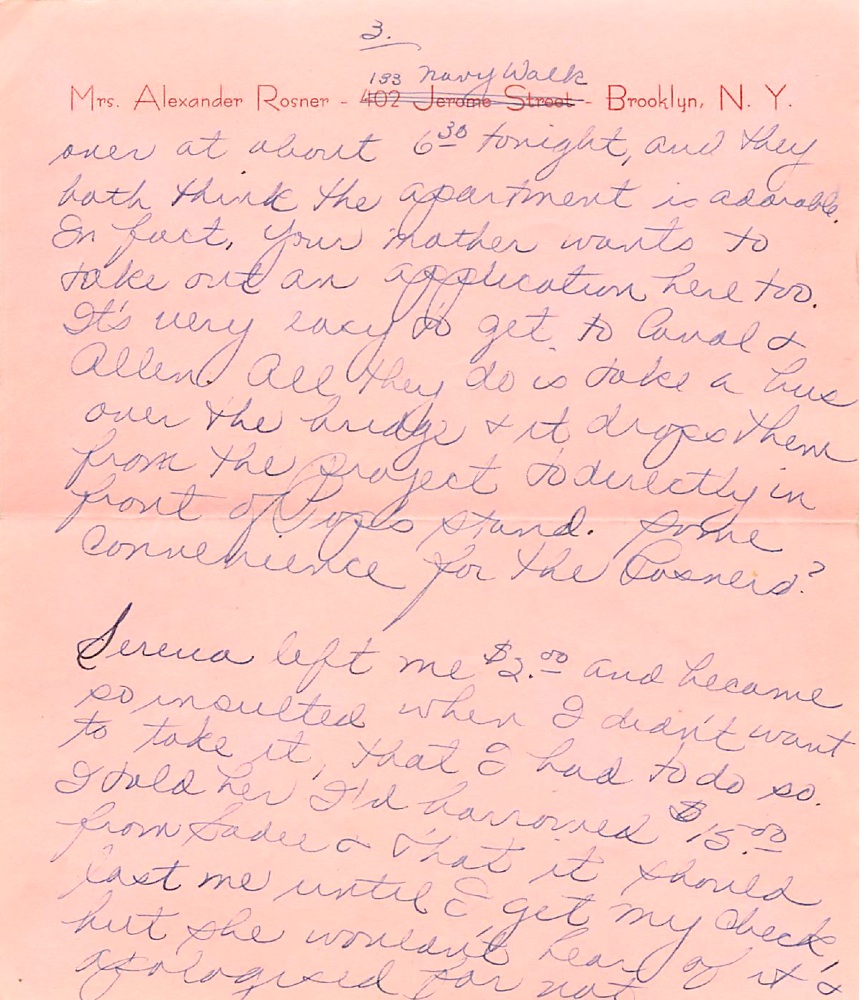 3.
133 Navy Walk
Mrs. Alexander Rosner - 402 Jerome Street - Brooklyn, N. Y.
over at about 6 30 tonight, and they
both think the apartment is adorable.
In fact, your mother wants to
take out an application here too.
It's very easy to get to Canal &
Allen. All they do is take a bus
over the bridge & it drops them
from the project to directly in
front of Pop's stand. Some
convenience for the Rosners?
Serena left me $2.00 and became
so insulted when I didn't want
to take it, that I had to do so.
I told her I'd borrowed $15.00
from Sadie & that it should
last me until I get my check,
but she wouldn't hear of it &
apologised for not